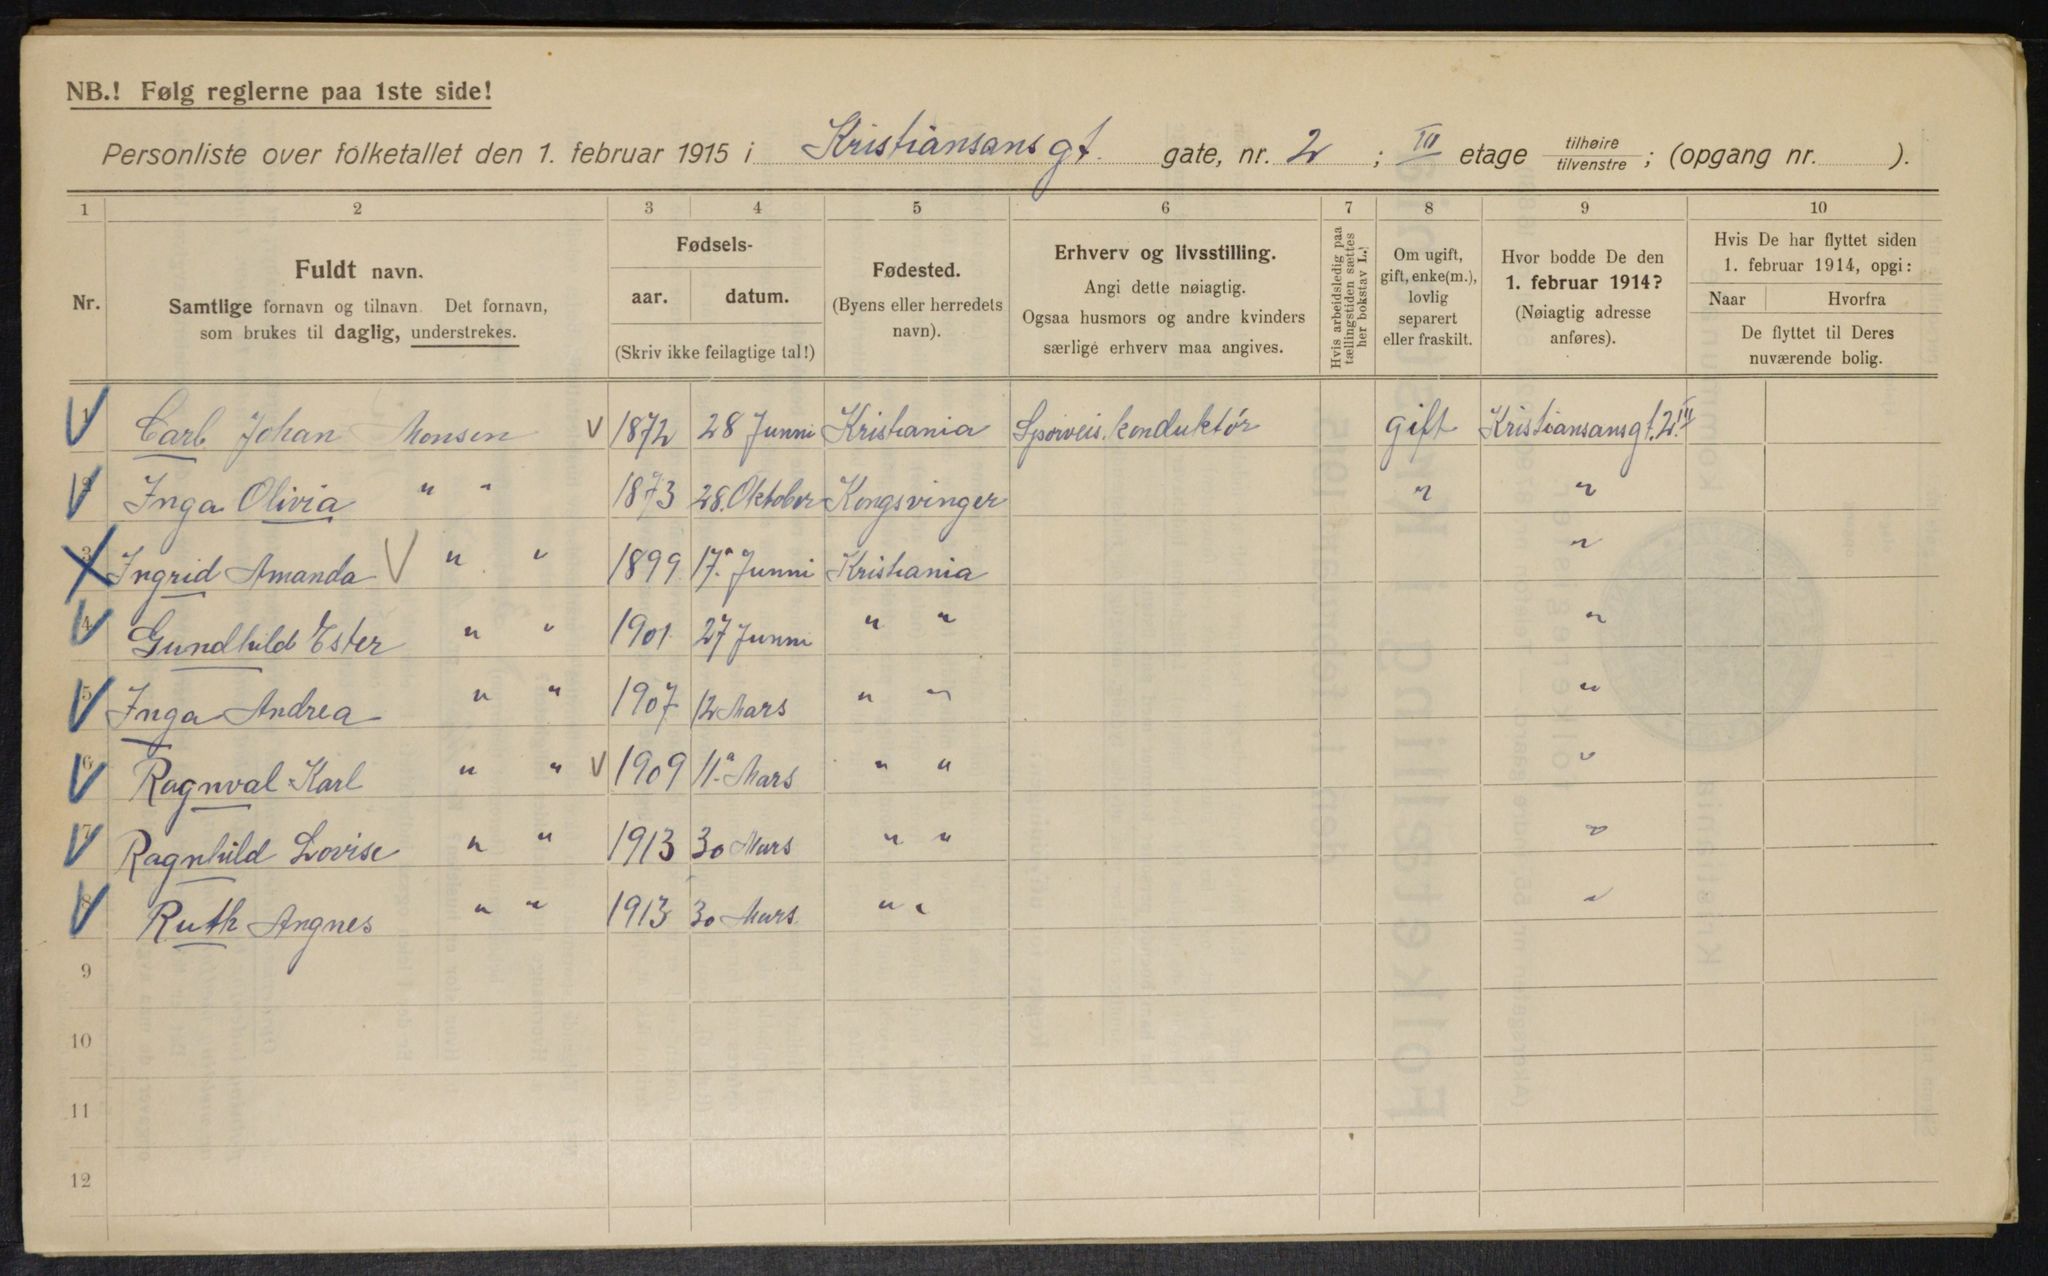 NB.! Følg reglerne paa 1ste side!
Personliste over folketallet den 1. februar 1915 i Kristiansans gt. gate, nr. 2 ; III etage tilhøire/tilvenstre ; (opgang nr. ).
1 2 3 4 5 6 7 8 9 10
Nr.
Fuldt navn.
Samtlige fornavn og tilnavn. Det fornavn,
som brukes til daglig, understrekes.
Fødsels-
aar. datum.
(Skriv ikke feilagtige tal!)
Fødested.
(Byens eller herredets
navn).
Erhverv og livsstilling.
Angi dette nøiagtig.
Ogsaa husmors og andre kvinders
særlige erhverv maa angives.
Hvis arbeidsledig paa
tællingstiden sættes
her bokstav L.!
Om ugift,
gift, enke(m.),
lovlig
separert
eller fraskilt.
Hvor bodde De den
1. februar 1914?
(Nøiagtig adresse
anføres).
Hvis De har flyttet siden
1. februar 1914, opgi:
Naar Hvorfra
De flyttet til Deres
nuværende bolig.
1 Carl Johan Monsen V 1872 28 Junni Kristiania Sporveis. konduktör gift Kristiansansgt. 2 III
2 Inga Olivia " " 1873 28. Oktober Kongsvinger " "
3 Ingrid Amanda V " " 1899 17. Junni Kristiania "
4 Gundhild Ester " " 1901 27 Junni " " "
5 Inga Andrea " " 1907 12 Mars " " "
6 Ragnval Karl " " V 1909 11. Mars " " "
7 Ragnhild Lovise " " 1913 30 Mars " " "
8 Ruth Angnes " " 1913 30 Mars " " "
9
10
11
12